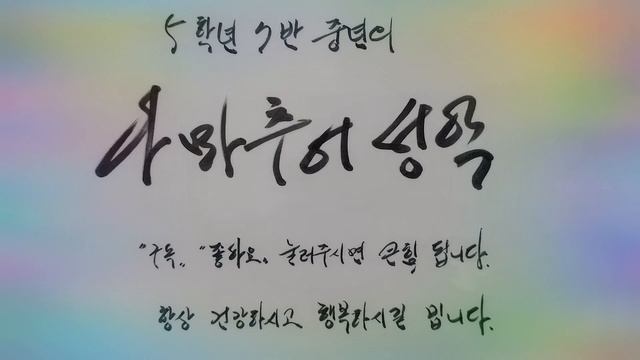 5학년 7반 중년의
아마추어 성악
"구독" "좋아요" 눌러주시면 큰힘 됩니다.
항상 건강하시고 행복하시길 빕니다.